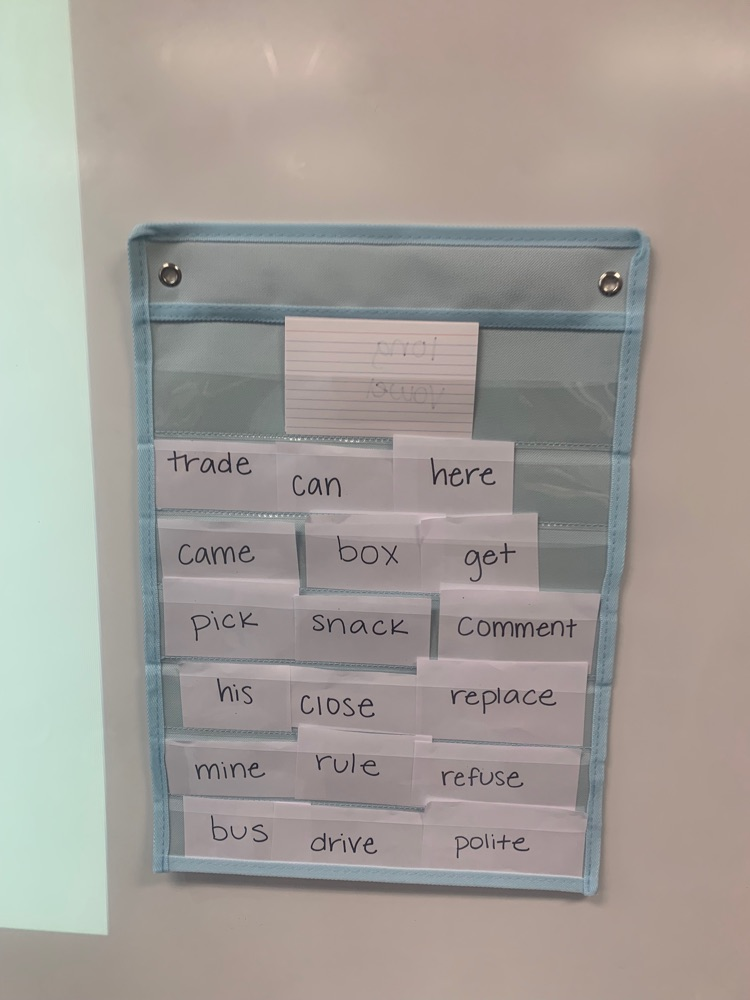 long
vowel
trade can here
came box get
pick snack comment
his close replace
mine rule refuse
bus drive polite